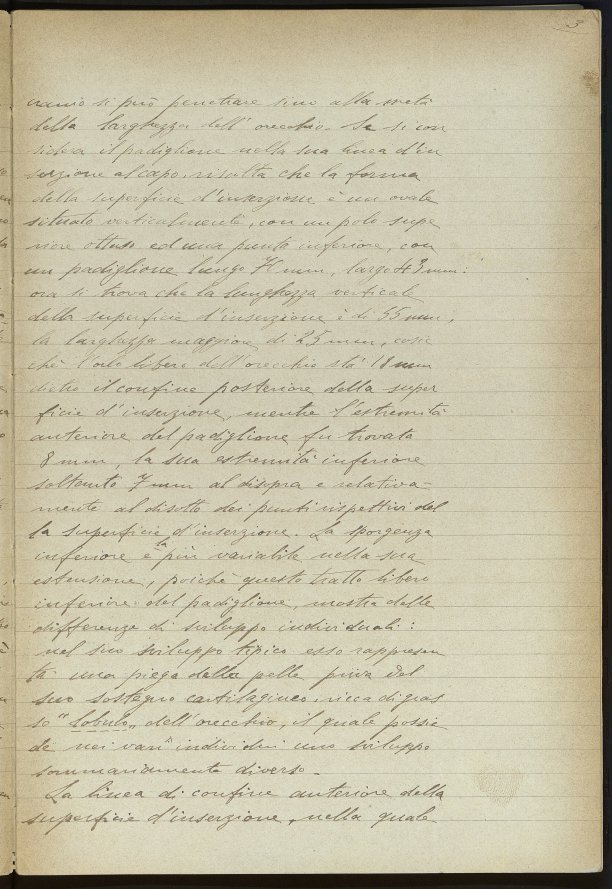 3
cranio si può penetrare sino alla metà
della larghezza dell'orecchio. Se si con
sidera il padiglione nella sua linea d'in
serzione al capo, risulta che la forma
della superficie d'inserzione è un ovale
situato verticalmente, con un polo supe
riore ottuso ed una punta inferiore, con
un padiglione lungo 71 mm, largo 43 mm:
ora si trova che la lunghezza verticale
della superficie d'inserzione è di 55 mm,
la larghezza maggiore di 25 mm, cosic
chè l'orlo libero dell'orecchio sta 18 mm
dietro il confine posteriore della super
ficie d'inserzione, mentre l'estremità
anteriore del padiglione fu trovata
8 mm, la sua estremità inferiore
soltanto 7 mm al disopra e relativa-
mente al disotto dei punti rispettivi del
la superficie d'inserzione. La sporgenza
inferiore è la più variabile nella sua
estensione, poichè questo tratto libero
inferiore del padiglione, mostra delle
differenze di sviluppo individuali:
nel suo sviluppo tipico esso rappresen
ta una piega della pelle priva del
suo sostegno cartilagineo, ricca di gras
so "lobulo" dell'orecchio, il quale possie
de nei vari individui uno sviluppo
sommariamente diverso.
La linea di confine anteriore della
superficie d'inserzione, nella quale